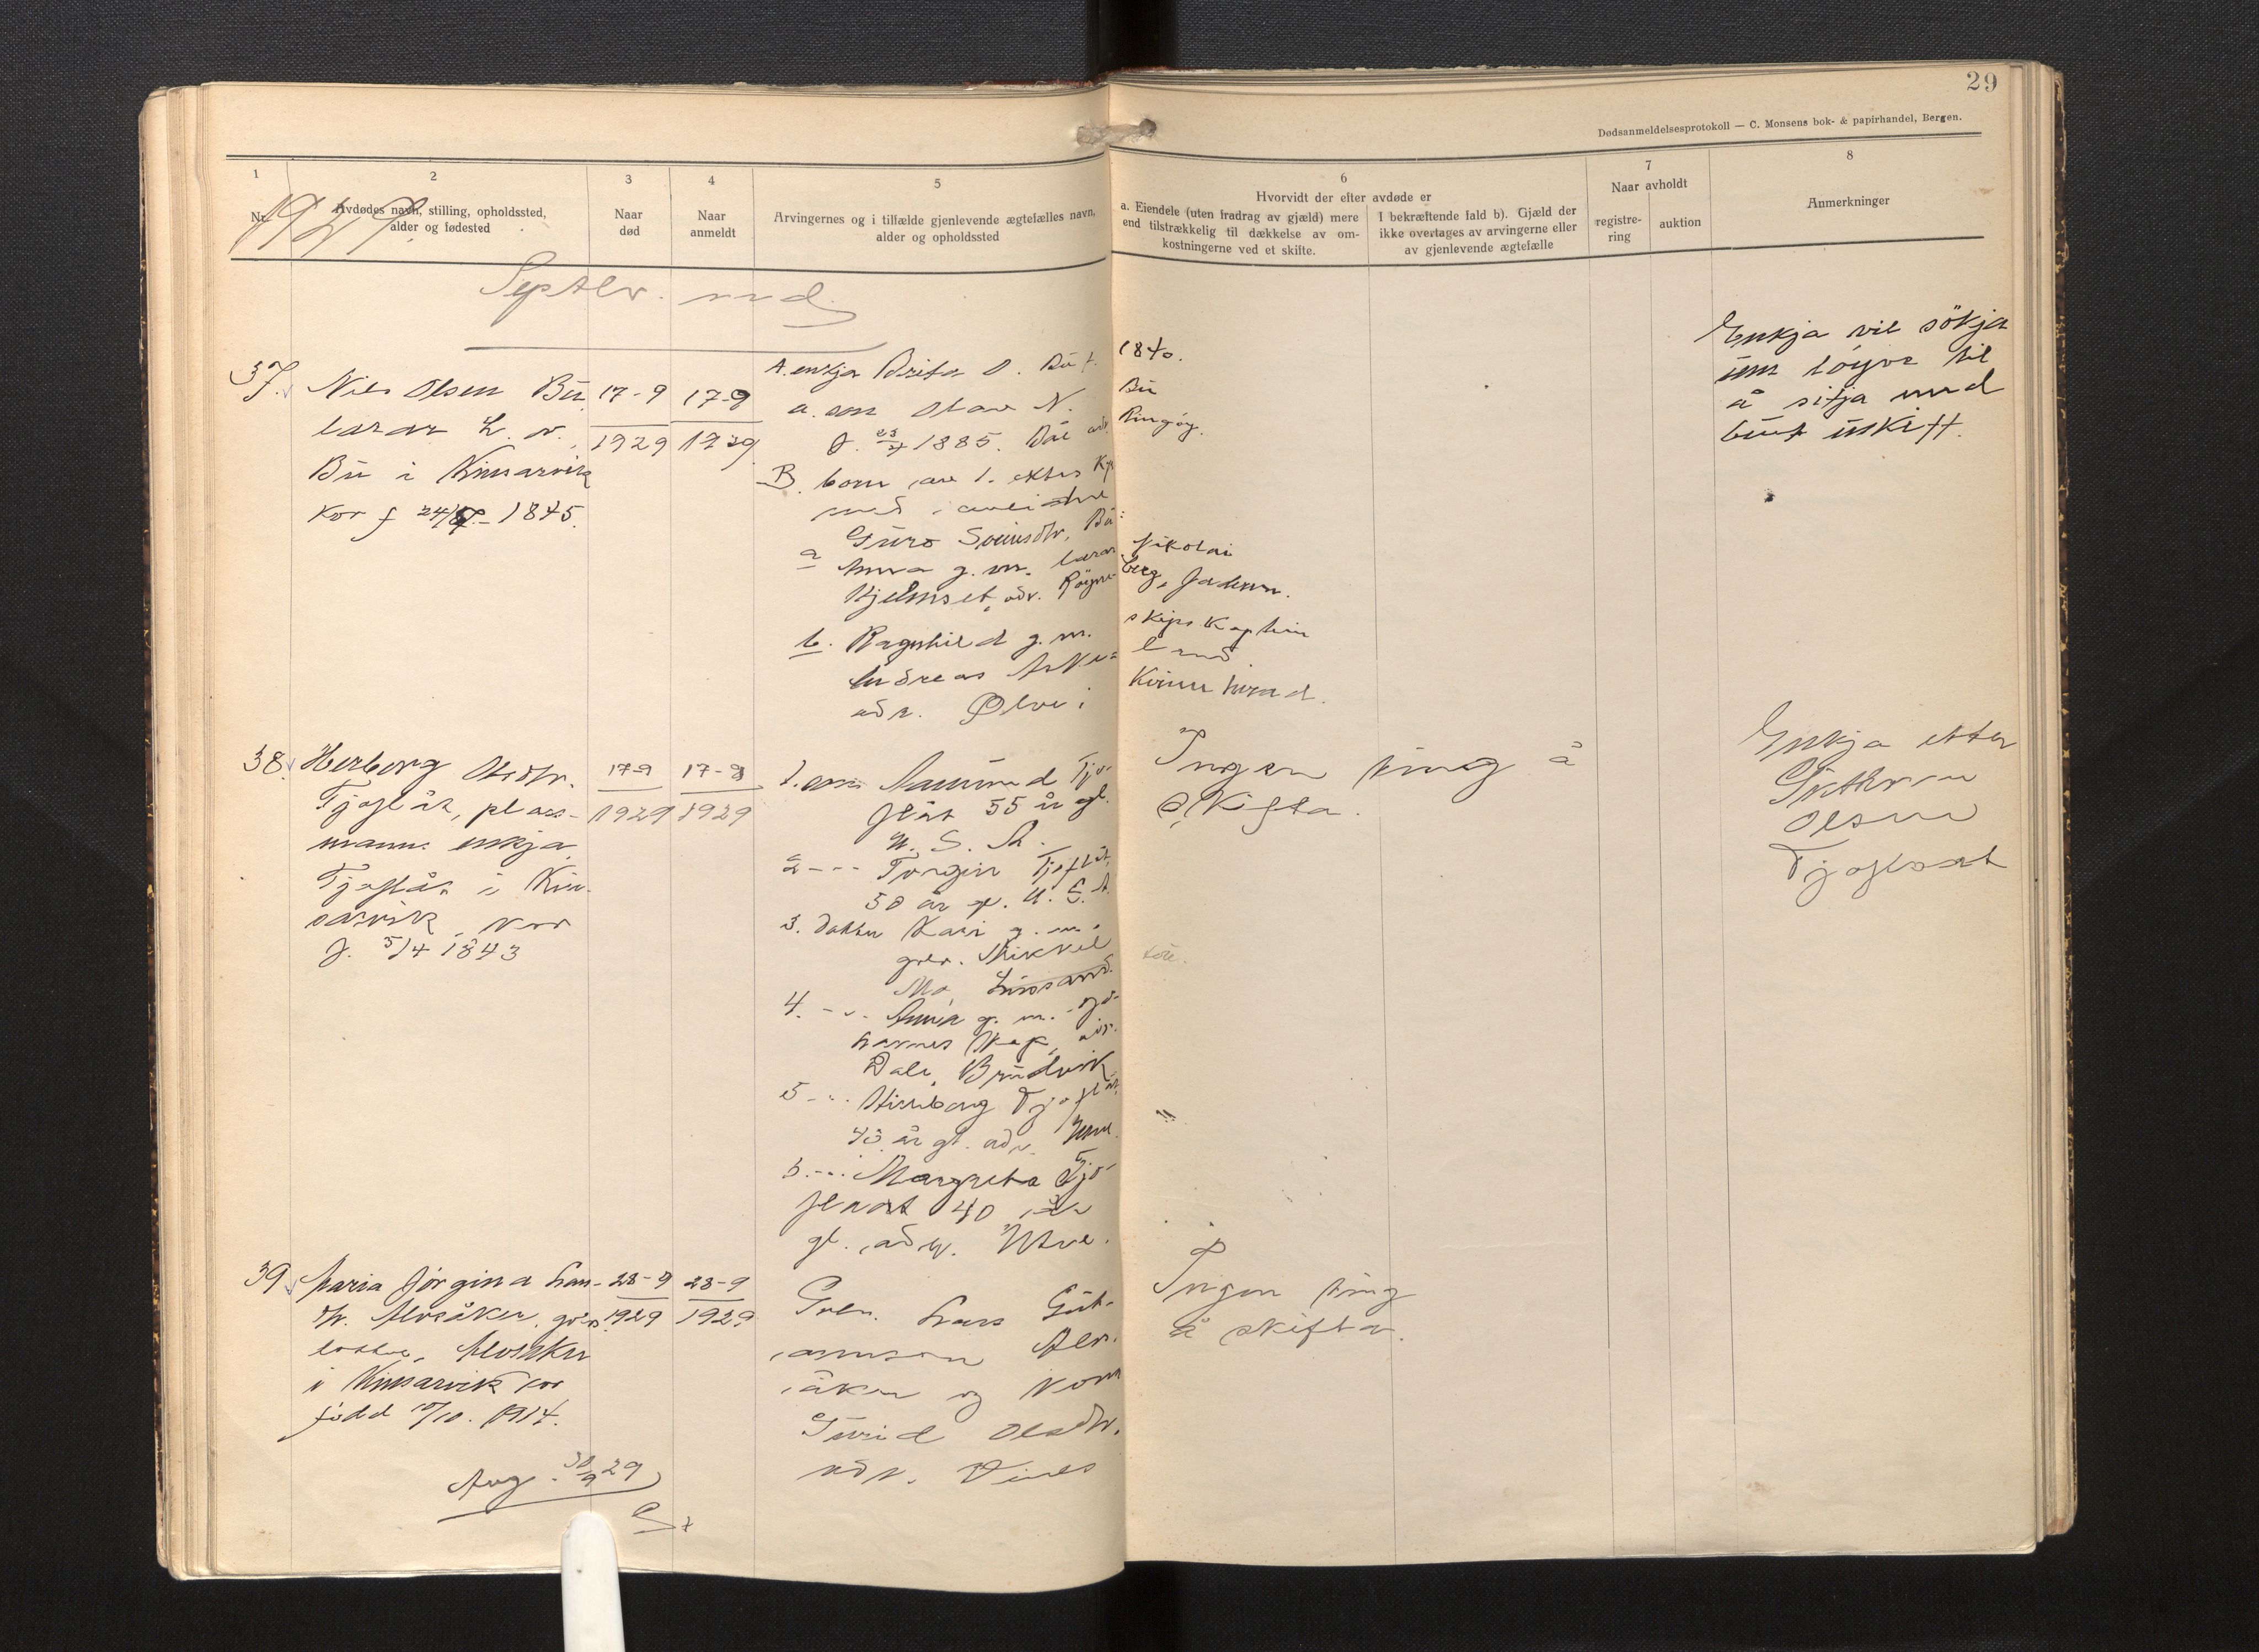 29
Dødsanmeldelsesprotokoll — C. Monsens bok- & papirhandel, Bergen.
1
2
3
4
5
6
7
8
Nr.
1929
Avdødes navn, stilling, opholdssted,
alder og fødested
Naar
død
Naar
anmeldt
Arvingernes og i tilfælde gjenlevende ægtefælles navn,
alder og opholdssted
Hvorvidt der efter avdøde er
a. Eiendele (uten fradrag av gjæld) mere
end tilstrækkelig til dækkelse av om-
kostningerne ved et skifte.
I bekræftende fald b). Gjæld der
ikke overtages av arvingerne eller
av gjenlevende ægtefælle
Naar avholdt
registre-
ring
auktion
Anmerkninger
Septbr. md.
37.
Nils Olsen Bu
lærar L. v.
Bu i Kinsarvik
Kor f 24/8 - 1845.
17-9
1929
17-9
1929
A. enkja Brita O. Bu f. 1840.
a. son Olav N. Bu
f. 23/7 1885. adr. Ringøy.
B. born av 1. ektes
med
Guro Sveinsdtr. Bu:
a g. m. lærar Nikolai
Kjelmset, adr.
b. Ragnhild g. m. skipskaptein
Andreas
adr. Ølve i Kvinnherad.
Enkja vil søkja
um løyve til
å sitja med
buet uskift.
38.
Herborg Olsdtr.
Tjoflåt, plass-
manns enkja
Tjoflåt i Kin-
sarvik kor
f. 5/4 1843
17-9
1929
17-9
1929
1. son Aamund Tjo-
flåt 55 år gl.
U. S. A.
2 - - - Torgeir Tjoflåt
50 år gl. U. S. A.
3. dotter Kari g. m.
grbr. Mikkel
Mo,
4. - - - Anna g. m. Jo-
hannes adr.
Dale, Bruvik
5 - - - Herborg Tjoflåt
43 år gl. adr. Utne.
6. - - - Margreta Tjo-
flaat 40 år
gl. adr. Utne.
Ingen ting å
skifta.
Enkja etter
Guttorm
Olsen
Tjoflaat
39
Maria Jørgina Lars-
dtr. Alvsåker, grbr.
dotter, Alvsåker
i Kinsarvik kor
fødd 10/10. 1914.
28-9
1929
28-9
1929
Grbr. Lars Gut-
ormson Alv-
såker og kona
Gurid Olsdtr.
adr. Vines
Ingen ting
å skifta.
Avg. 30/9 29